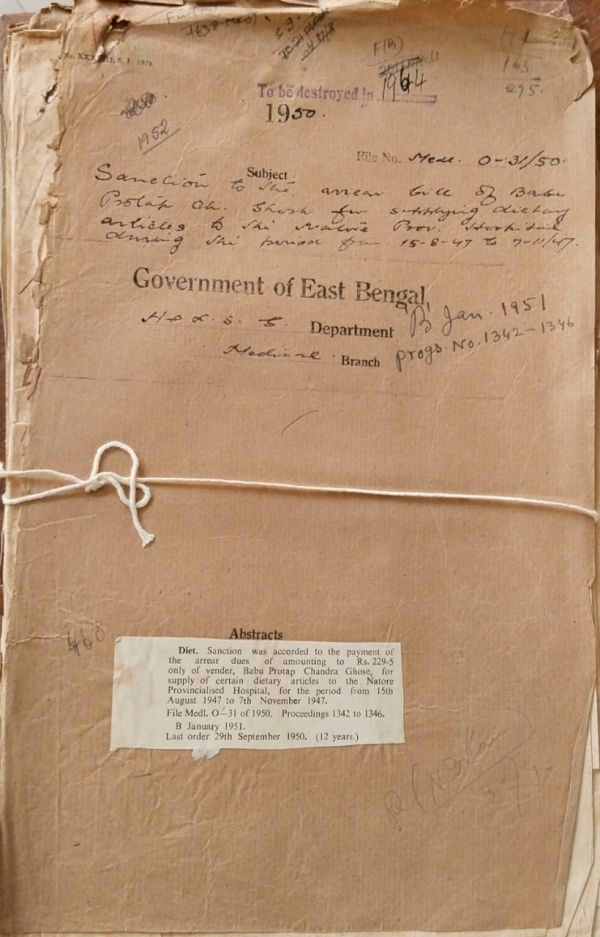 To be destroyed in 1964
1950.
1952
File No. Medl. O-31/50
Subject
Sanction to the arrear bill of Babu
Protap Ch. Ghosh for supplying dietary
articles to the Natore Prov. Hospital
during the period from 15-8-47 to 7-11/47.
Government of East Bengal
Department
"B" Jan. 1951
Branch
Progs. No. 1342-1346
460
Abstracts
Diet. Sanction was accorded to the payment of
the arrear dues of amounting to Rs. 229-5
only of vender, Babu Protap Chandra Ghose, for
supply of certain dietary articles to the Natore
Provincialised Hospital, for the period from 15th
August 1947 to 7th November 1947.
File Medl. O-31 of 1950. Proceedings 1342 to 1346.
B January 1951.
Last order 29th September 1950. (12 years.)